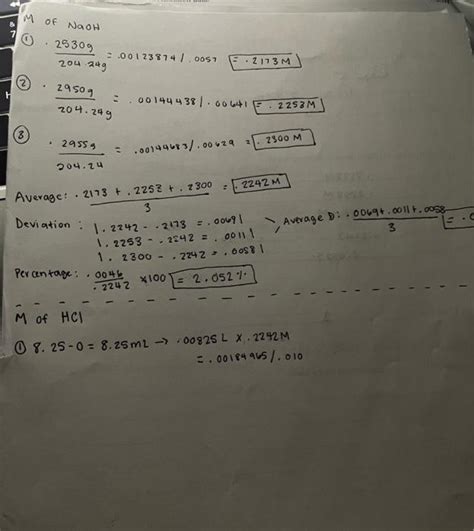 M OF NaOH
① .2530g / 204.24g = .00123874 / .0057 = .2173 M
② .2950g / 204.24g = .00144438 / .00641 = .2253M
③ .2955g / 204.24 = .00144683 / .00629 = .2300 M
Average: .2173 + .2253 + .2300 / 3 = .2242 M
Deviation: |.2242 - .2173 = .0069|
|.2253 - .2242 = .0011|
|.2300 - .2242 = .0058|
Average D: .0069+.0011+.0058 / 3 = .0
Percentage: .0046 / .2242 ×100 = 2.052%
M of HCl
① 8.25-0 = 8.25mL → .00825 L × .2242M
= .00184965/.010